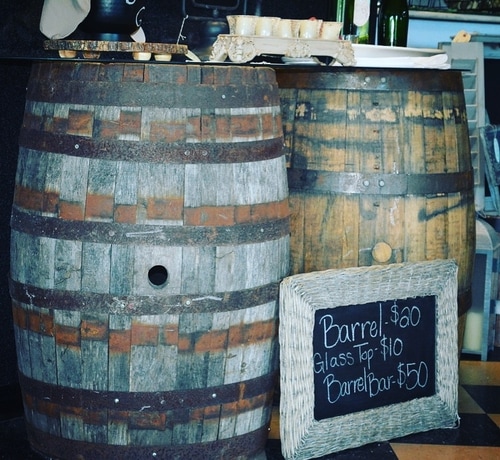 Barrel-$20
Glass Top-$10
Barrel Bar-$50